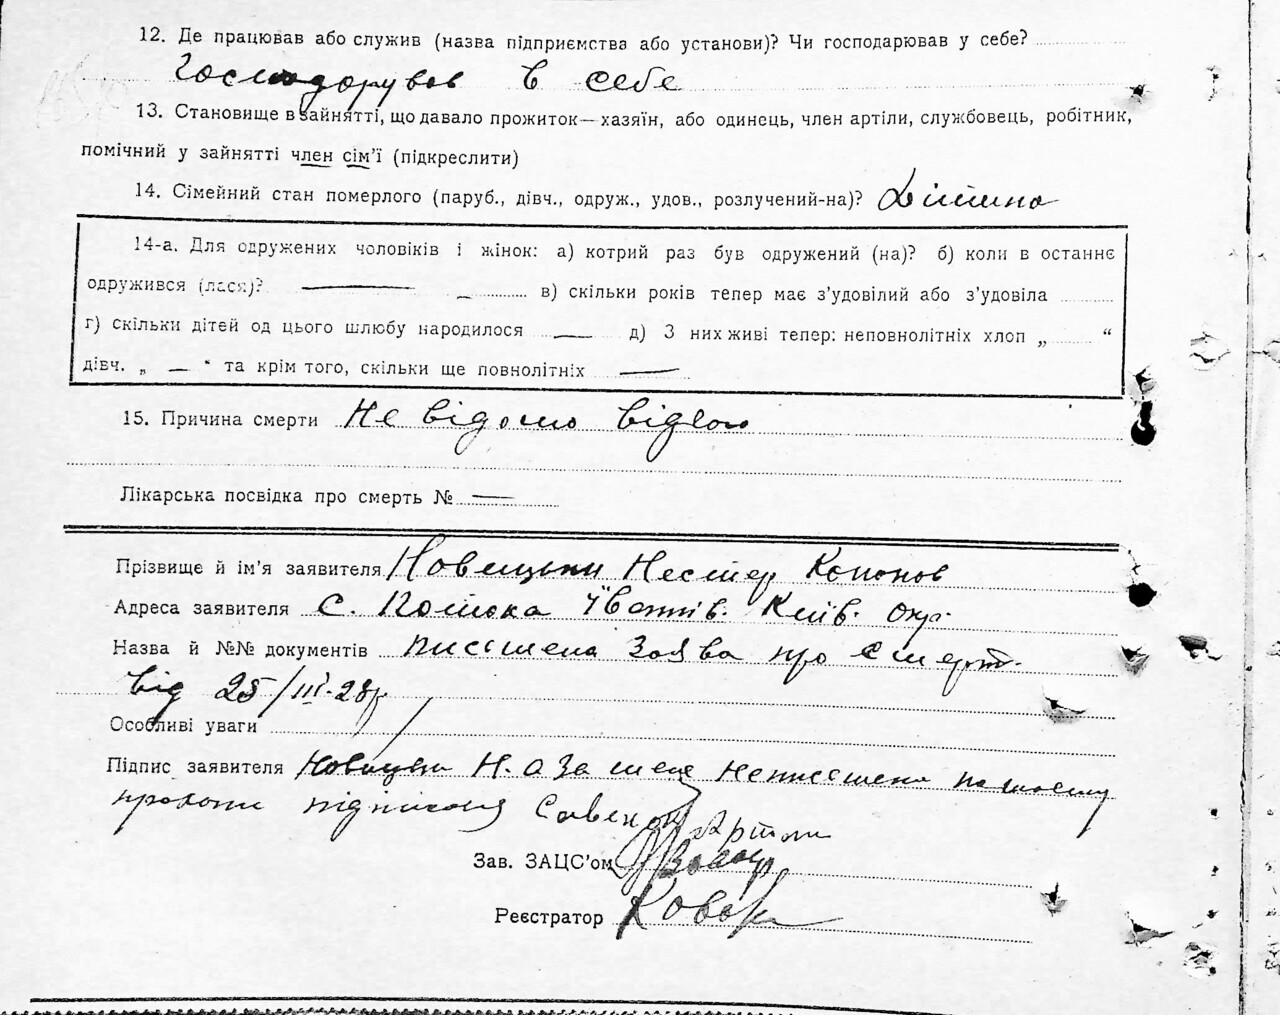 12. Де працював або служив (назва підприємства або установи)? Чи господарював у себе?
Господорував в себе
13. Становище в зайнятті, що давало прожиток—хазяїн, або одинець, член артіли, службовець, робітник,
помічний у зайнятті член сім'ї (підкреслити)
14. Сімейний стан померлого (паруб., дівч., одруж., удов., розлучений-на)?
14-а. Для одружених чоловіків і жінок: а) котрий раз був одружений (на)? б) коли в останнє
одружився (лася)? — в) скільки років тепер має з'удовілий або з'удовіла
г) скільки дітей од цього шлюбу народилося — д) З них живі тепер: неповнолітніх хлоп „ “
дівч. „ — “ та крім того, скільки ще повнолітніх —
15. Причина смерти Не відомо
Лікарська посвідка про смерть № —
Прізвище й ім'я заявителя Новицьки Нестер Кононов
Адреса заявителя с. Київ. окр.
Назва й №№ документів письмена заява про смерт.
від 25/III-28р
Особливі уваги
Підпис заявителя Новицьки Н. а за
Зав. ЗАЦС'ом
Реєстратор